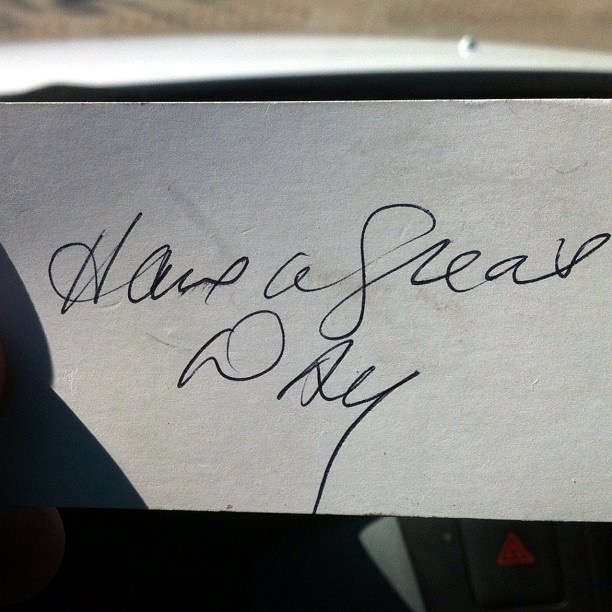 Have a great
Day